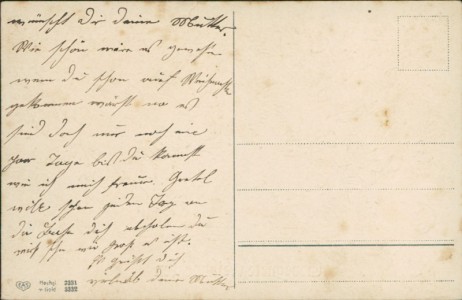 wünscht dir deine Mutter.
Wie schön wäre es gewesen
wenn du schon auf Weihnacht
gekommen wärst na es
sind doch nur noch ein
paar Tage bis du kommst
wie ich mich freue. Gretel
will schon jeden Tag an
die Bahn dich abholen du
weißt ja wie sie ist.
Es grüßt dich
vielmals deine Mutter
EAS